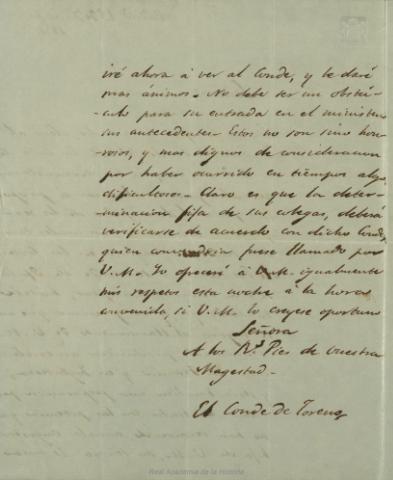 iré ahora á ver al Conde, y le daré
mas ánimos.- No debe ser un obstá-
culo para su entrada en el ministerio
sus antecedentes. Estos no son sino hon-
-rosos, y mas dignos de consideracion
por haber ocurrido en tiempos algo
dificultosos.- Claro es que la deter-
-minacion fija de sus colegas, deberá
verificarse de acuerdo con dicho Conde,
quien convendria fuese llamado por
V.M. Yo ofreceré á V.M. igualmente
mis respetos esta noche á la hora
convenida, si V.M. lo creyese oportuno
Señora
A los R.s Pies de vuestra
Magestad.-
El Conde de Toreno
Real Academia de la Historia